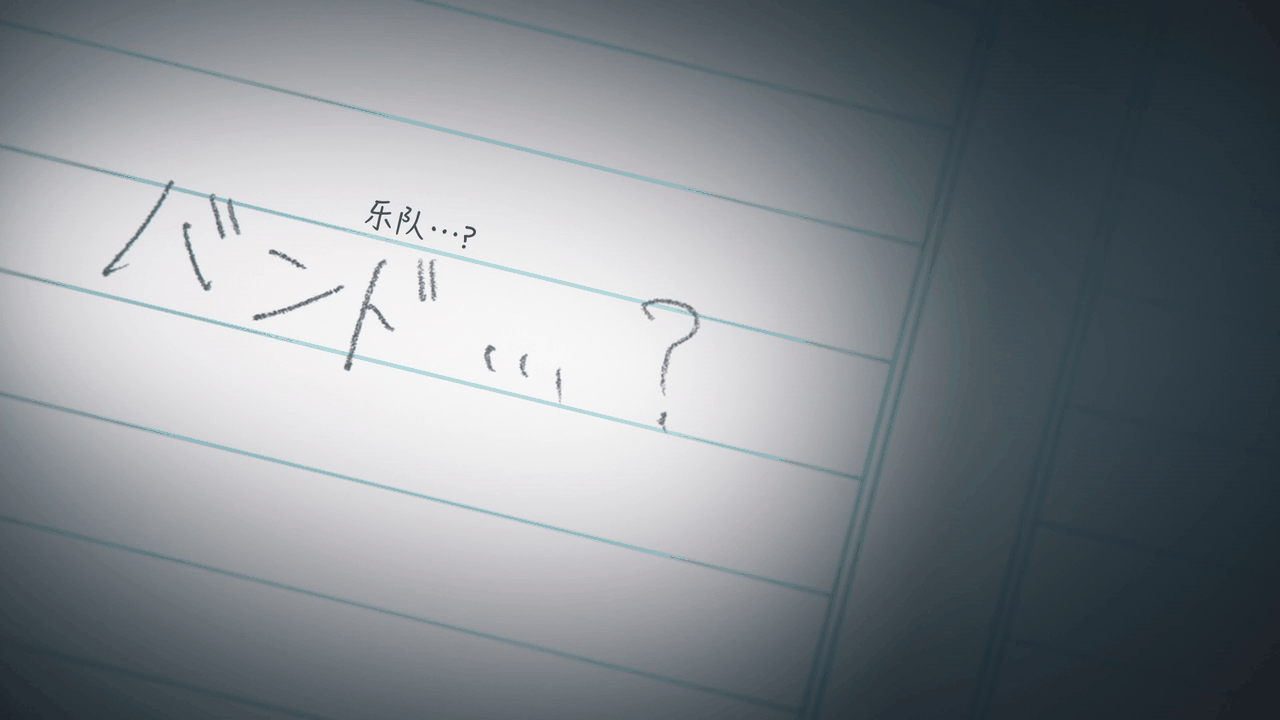 乐队…?
バンド…?